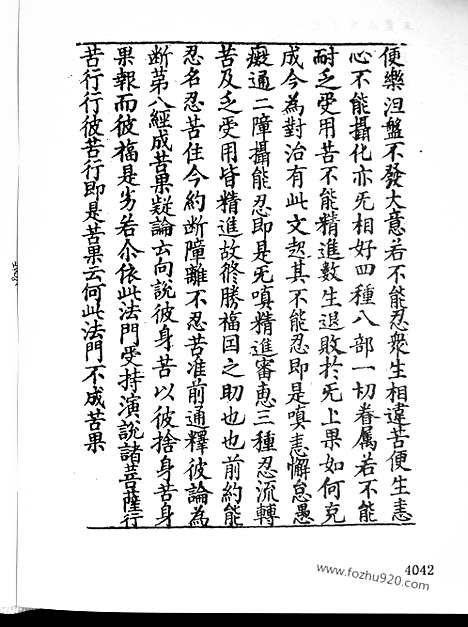 便樂涅盤不發大意若不能忍衆生相違苦便生恚
心不能攝化亦旡相好四種八部一切眷属若不能
耐乏受用苦不能精進數生退敗於旡上果如何克
成今為對治有此文起其不能忍即是嗔恚懈怠愚
癡通二障攝能忍即是旡嗔精進審恵三種忍流轉
苦及乏受用皆精進故修勝福因之助也也前約能
忍名忍苦住今約断障離不忍苦准前通釋彼論為
断苐八經成苦果疑論云向說彼身苦以彼捨身苦身
果報而彼福是劣若尒依此法門受持演說諸菩薩行
苦行行彼苦行即是苦果云何此法門不成苦果
4042
www.fozhu920.com